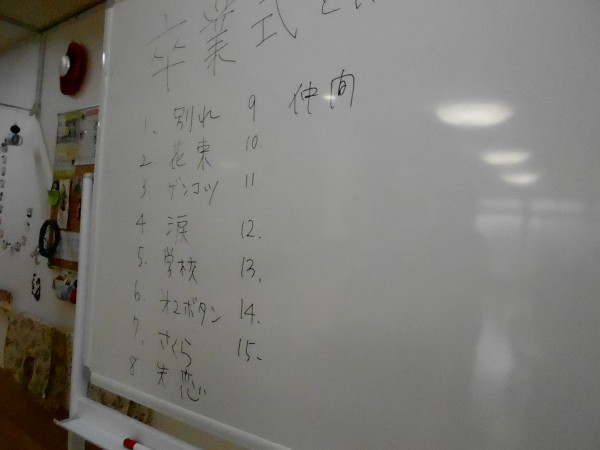 卒業式と
1. 別れ
2. 花束
3 ゲンコツ
4 涙
5. 学校
6. 第2ボタン
7. さくら
8 失恋
9 仲間
10
11
12.
13.
14.
15.